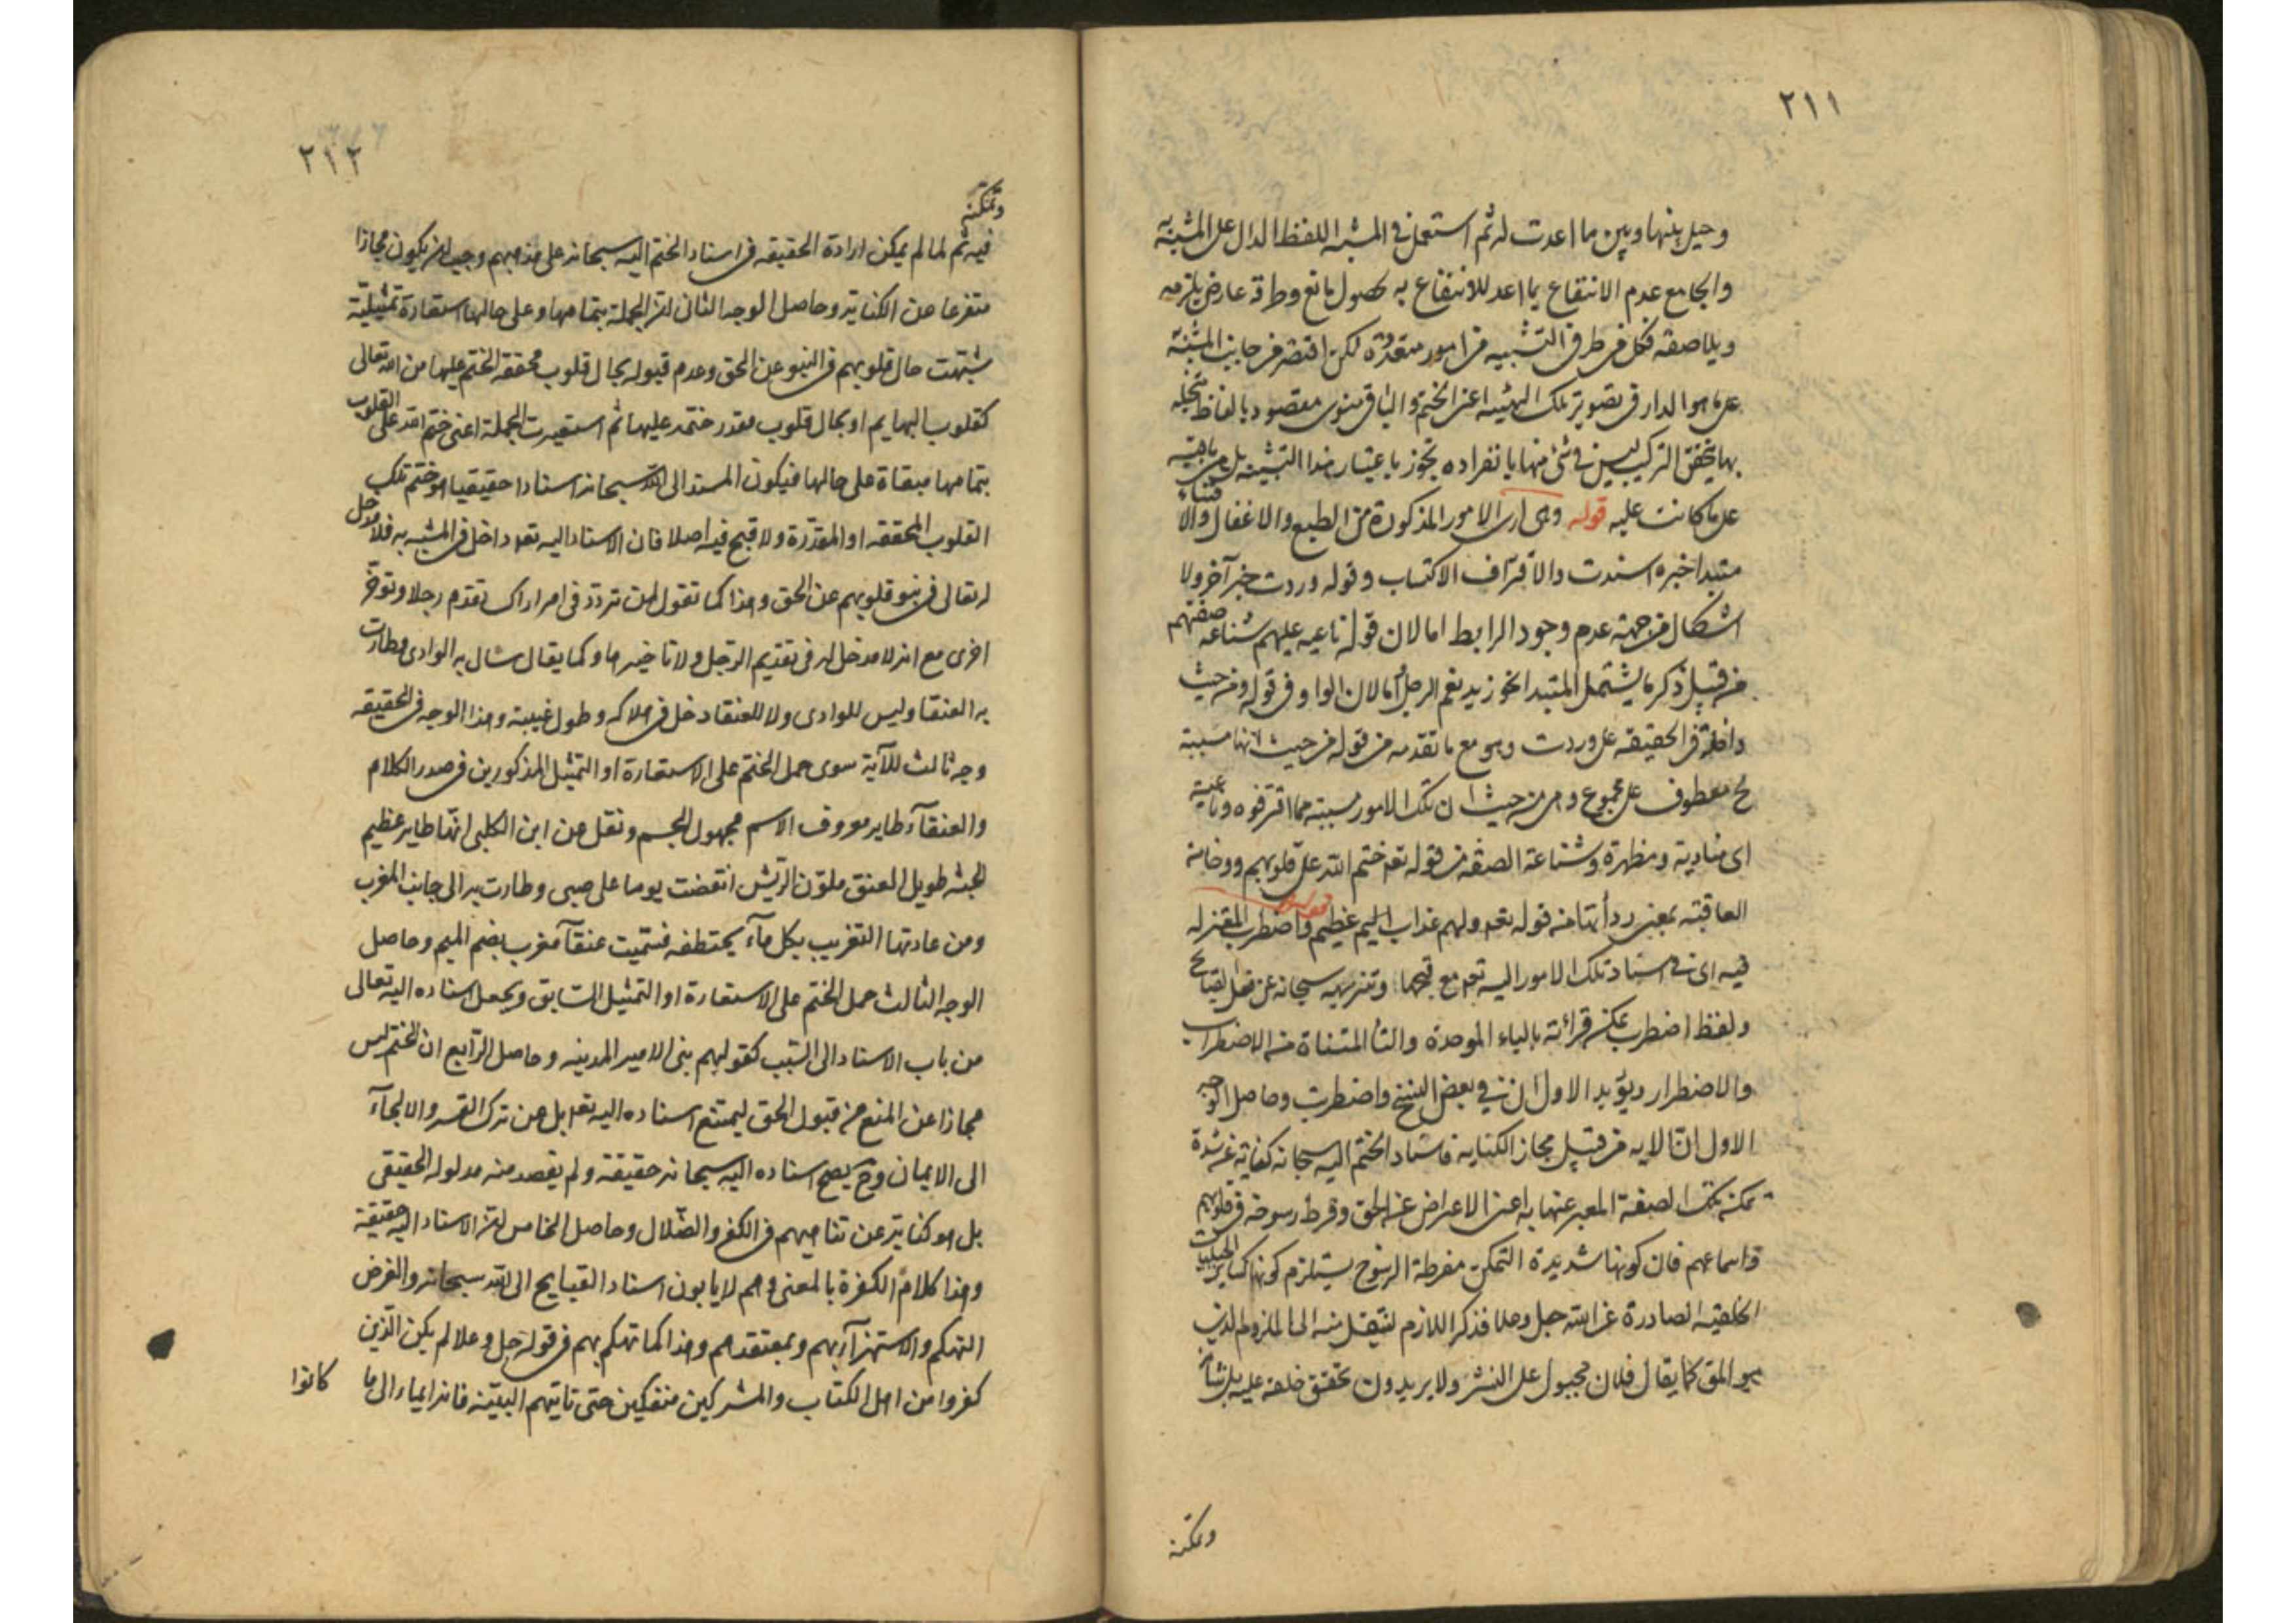 ٢١١
وحيل بينها وبين ما اعدت له ثم استعمل في المشبه اللفظ الدال على المشبه به
والجامع عدم الانتفاع بما اعد للانتفاع به لحصول مانع وطرق عارض يلزمه
ويلاصقه فكل من طرفى التشبيه من امور متعددة لكن اقتصر من جانب المشبه به
على ما هو المدار في تصوير تلك الهيئة اعنى الختم والباقى منوى مقصود بالفاظ متخيلة
بها يتحقق التركيب ليس في شئ منها بانفراده تجوز باعتبار هذا التشبيه بل هى باقية
على ما كانت عليه قوله وهى اى الامور المذكورة من الطبع والاغفال والاقساء
مبتدا خبره اسندت والاقتراف الاكتساب وقوله وردت خبر آخر ولا
اشكال من جهة عدم وجود الرابط اما لان قوله ناعيه عليهم شناعة صفتهم
من قبيل ذكر ما يشتمل المبتدا نحو زيد نعم الرجل او لان الواو في قوله ومن حيث
داخلة في الحقيقة على وردت وهو مع ما تقدمه من قوله من حيث انها مسببة
ح معطوف على مجموع وهى من حيث ان تلك الامور مسببة مما اقترفوه وناعية
اى منادية ومظهرة وشناعة الصفة من قوله تعه ختم الله على قلوبهم ووخامة
العاقبة بمعنى ردأتها من قوله تعه ولهم عذاب اليم عظيم قوله واضطرب المعتزلة
فيه اى في اسناد تلك الامور اليه تعه مع قبحها وتنزيهه سبحانه عن فعل القبائح
ولفظ اضطرب يمكن قرائته بالباء الموحدة والتا المثناة من الاضطراب
والاضطرار ويؤيد الاول ان في بعض النسخ واضطربت وحاصل الوجه
الاول ان الاية من قبيل مجاز الكناية فاسناد الختم اليه سبحانه كناية عن شدة
تمكن تلك الصفة المعبر عنها به اعنى الاعراض عن الحق وفرط رسوخه في قلوبهم
واسماعهم فان كونها شديدة التمكن مفرطة الرسوخ يستلزم كونها كساير الجبليات
الخلقية الصادرة عن الله جل وعلا فذكر اللازم لينتقل منه الى الملزوم الذى
هو المق كما يقال فلان مجبول على الشر ولا يريدون تحقق خلقه عليه بل ثباته
وتمكنه
٢١٢
وتمكنه
فيه ثم لما لم يمكن ارادة الحقيقه فى اسناد الختم اليه سبحانه على مذهبهم وجب ان يكون مجازا
متفرعا عن الكناية وحاصل الوجه الثانى ان الجملة بتمامها وعلى حالها استعارة تمثيلية
شبهت حال قلوبهم فى النبو عن الحق وعدم قبوله بحال قلوب محققة الختم عليها من الله تعالى
كقلوب البهايم او بحال قلوب مقدر ختمه عليها ثم استعيرت الجملة اعنى ختم الله على القلوب
بتمامها مبقاة على حالها فيكون المسند الى الله سبحانه اسنادا حقيقيا هو ختم تلك
القلوب المحققه او المقدرة ولا قبح فيه اصلا فان الاسناد اليه تعه داخل فى المشبه به فلا مدخل
له تعالى فى نبو قلوبهم عن الحق وهذا كما تقول لمن تردد فى امر اراك تقدم رجلا وتوخر
اخرى مع انه لا مدخل له فى تقديم الرجل ولا تاخيرها وكما يقال سال به الوادى وطارت
به العنقا وليس للوادى ولا للعنقا دخل فى هلاكه وطول غيبته وهذا الوجه فى الحقيقه
وجه ثالث للآية سوى حمل الختم على الاستعارة او التمثيل المذكورين فى صدر الكلام
والعنقآء طاير معروف الاسم مجهول الجسم ونقل عن ابن الكلبى انها طاير عظيم
الجثه طويل العنق ملون الريش انقضت يوما على صبى وطارت به الى جانب المغرب
ومن عادتها التغريب بكل مآء يختطفه فسميت عنقآ مغرب بضم الميم وحاصل
الوجه الثالث حمل الختم على الاستعارة او التمثيل السابق وبجعل اسناده اليه تعالى
من باب الاسناد الى السبب كقولهم بنى الامير المدينه وحاصل الرابع ان الختم ليس
مجازا عن المنع من قبول الحق ليمتنع اسناده اليه تعه بل عن ترك القسر والالجآء
الى الايمان وح يصح اسناده اليه سبحانه حقيقة ولم يقصد منه مدلوله الحقيقى
بل هو كناية عن تناهيهم فى الكفر والضلال وحاصل الخامس ان الاسناد اليه حقيقة
وهذا كلام الكفرة بالمعنى وهم لا يابون اسناد القبايح الى الله سبحانه والغرض
التهكم والاستهزآء بهم وبمعتقدهم وهذا كما تهكم بهم فى قوله جل وعلا لم يكن الذين
كفروا من اهل الكتاب والمشركين منفكين حتى تاتيهم البينة فانه ايماء الى ما
كانوا